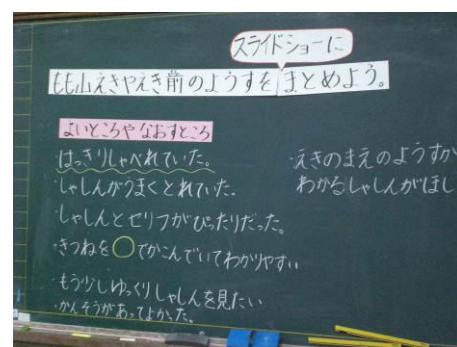 スライドショーに
もも山えきやえき前のようすを まとめよう。
よいところや なおすところ
・はっきりしゃべれていた。
・しゃしんがうまくとれていた。
・しゃしんとセリフがぴったりだった。
・きつねを○でかこんでいてわかりやすい
・もう少しゆっくりしゃしんを見たい
・かんそうがあってよかった。
・えきのまえのようすが
わかるしゃしんがほし